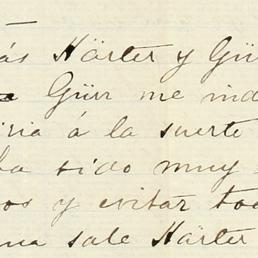 ás Härter y Gü
Gürr me ind
iria á la suerte
ha sido muy
os y evitar to
una sale Härter